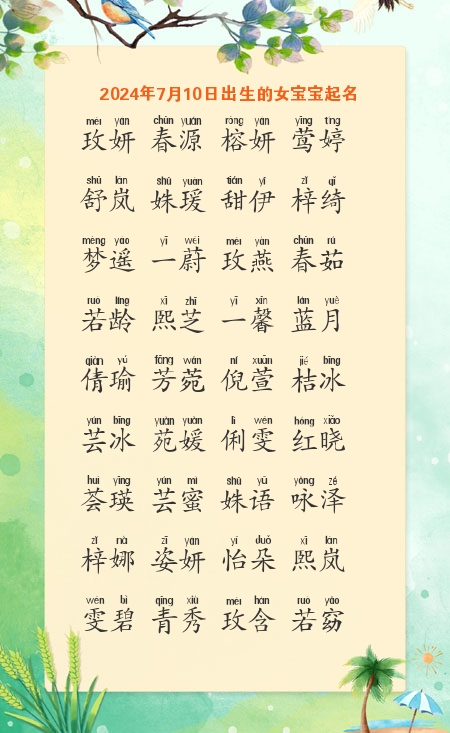 2024年7月10日出生的女宝宝起名
méi yán chūn yuán róng yán yīng tíng
玫妍 春源 榕妍 莺婷
shū lán shū yuàn tián yī zǐ qǐ
舒岚 姝瑗 甜伊 梓绮
mèng yáo yī wèi méi yàn chūn rú
梦遥 一蔚 玫燕 春茹
ruò líng xī zhī yī xīn lán yuè
若龄 熙芝 一馨 蓝月
qiàn yú fāng wǎn ní xuān jié bīng
倩瑜 芳菀 倪萱 桔冰
yún bīng yuàn yuàn lì wén hóng xiǎo
芸冰 苑媛 俐雯 红晓
huì yīng yún mì shū yǔ yǒng zé
荟瑛 芸蜜 姝语 咏泽
zǐ nà zī yán yí duǒ xī lán
梓娜 姿妍 怡朵 熙岚
wén bì qīng xiù méi hán ruò yǎo
雯碧 青秀 玫含 若窈